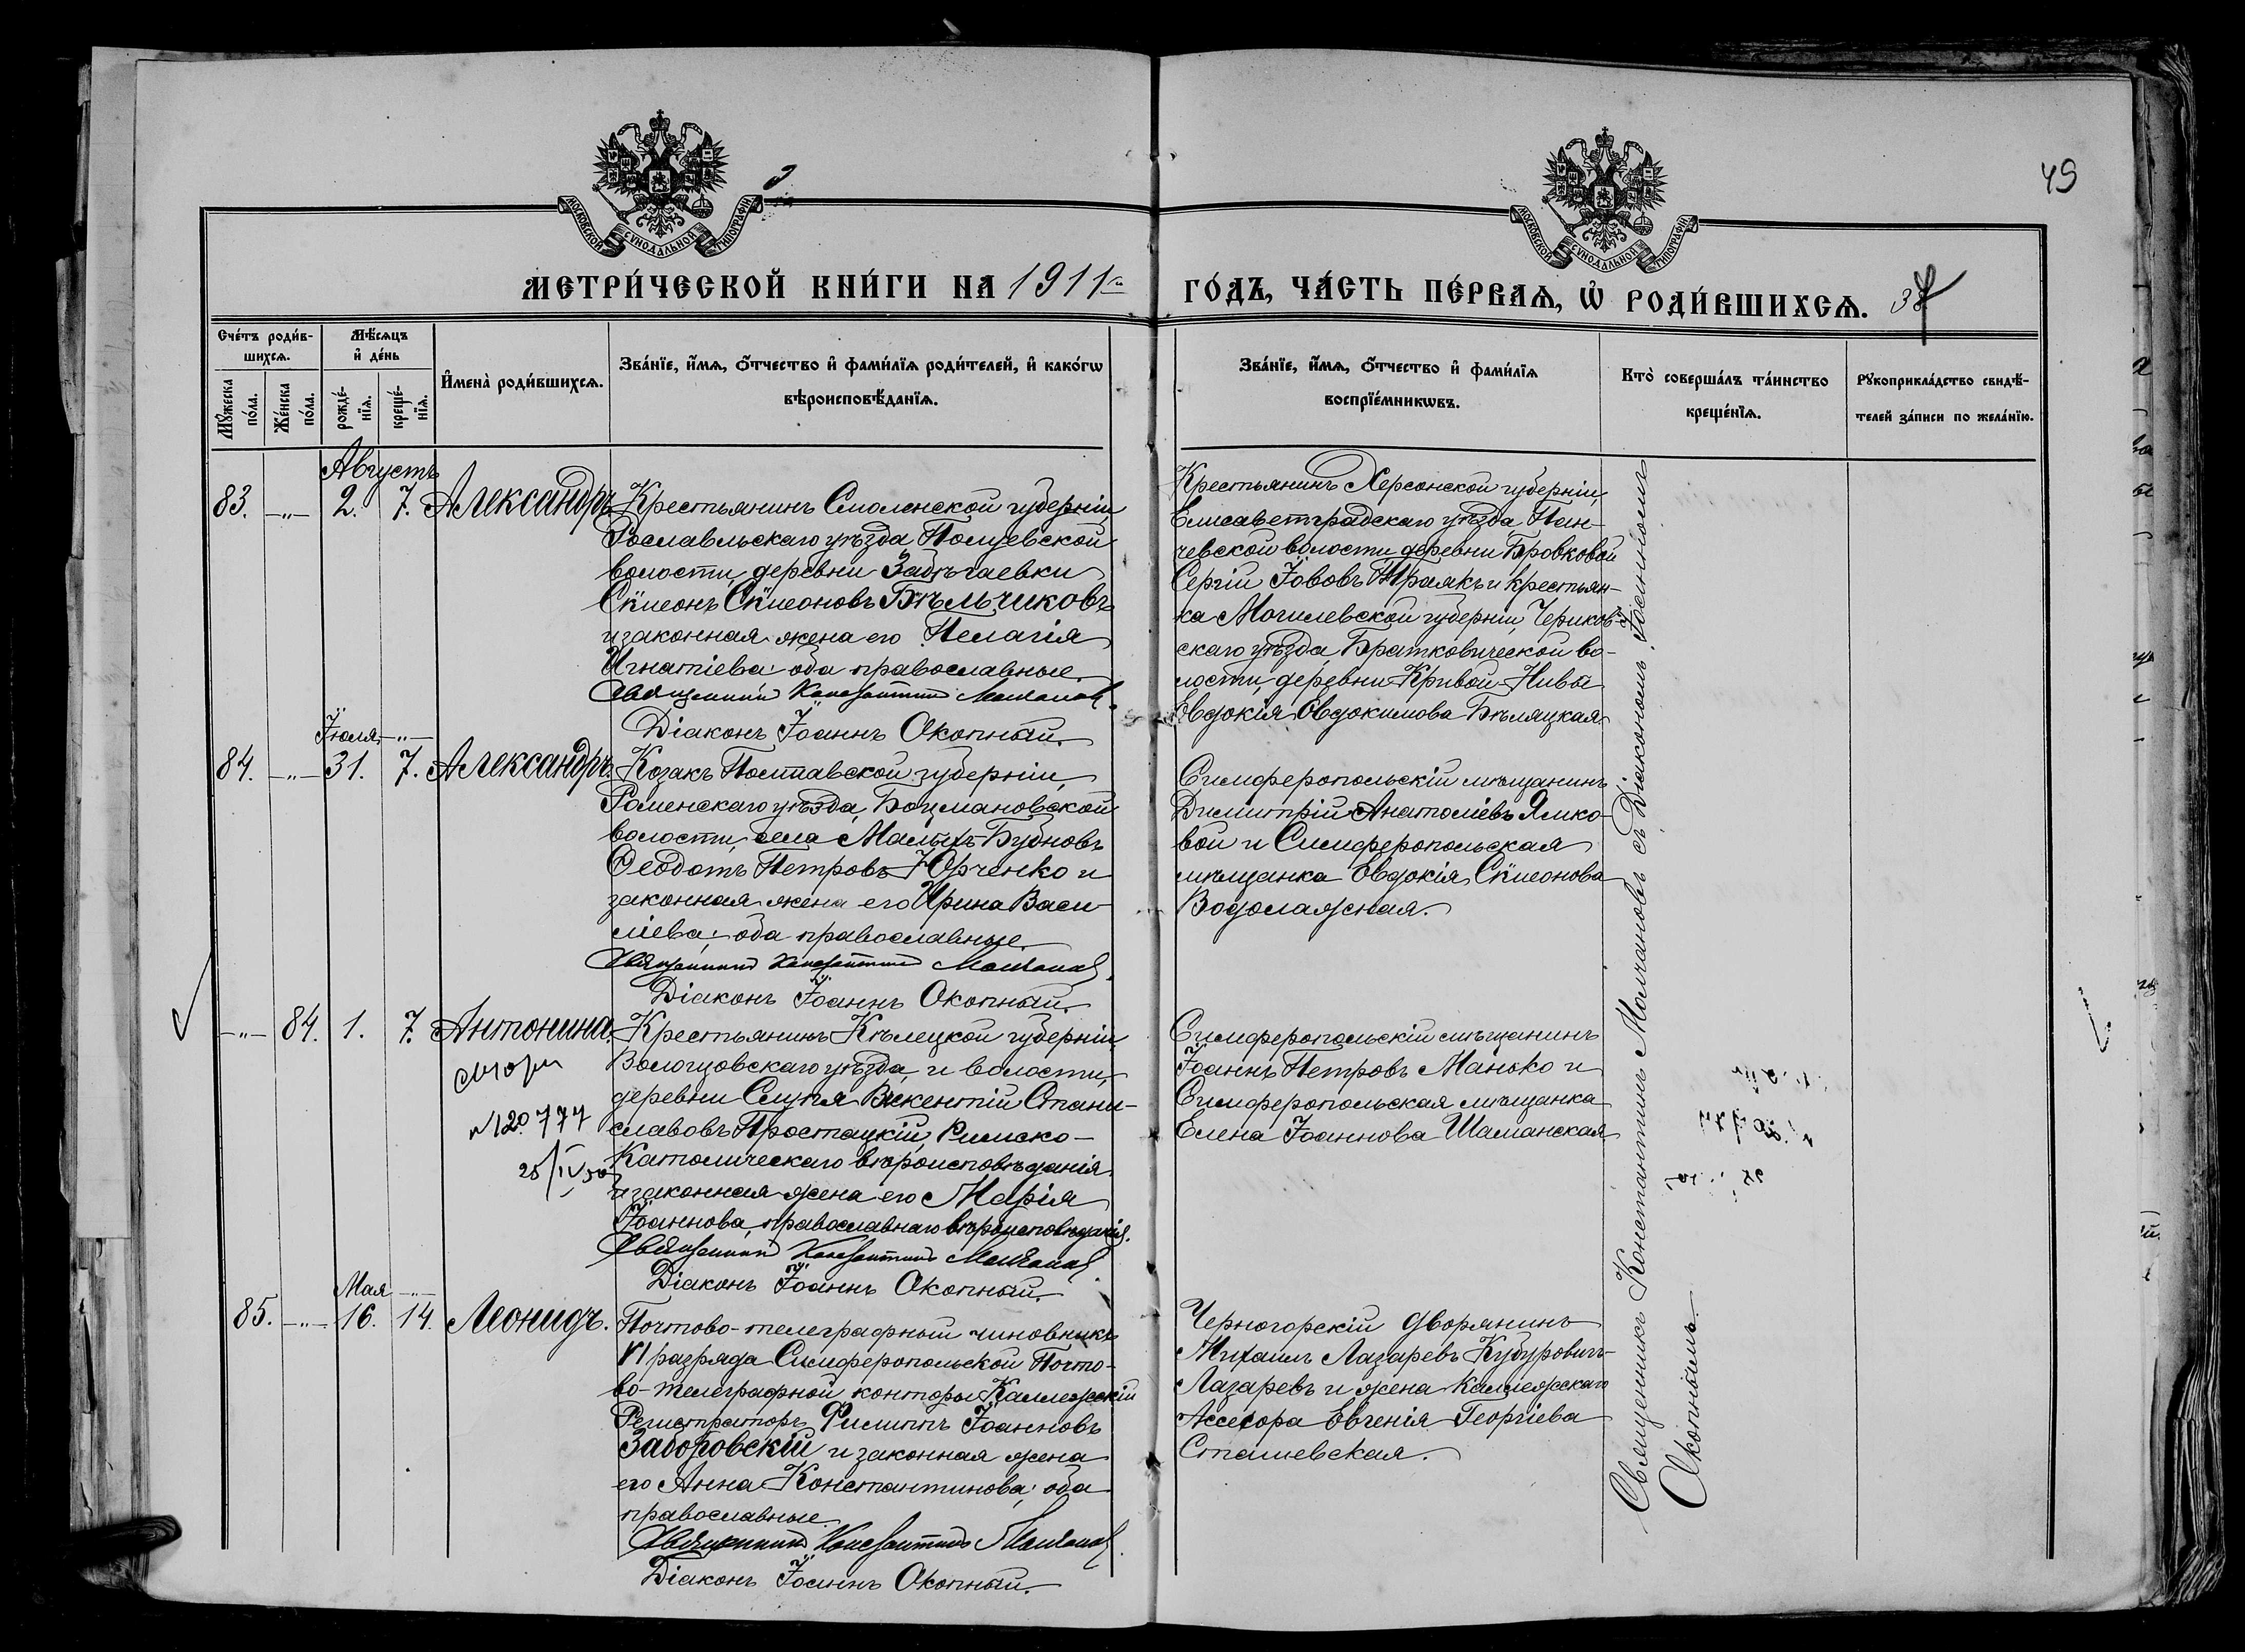 49
МОСКОВСКОЙ СѴНОДАЛЬНОЙ ТИПОГРАФІИ
МОСКОВСКОЙ СѴНОДАЛЬНОЙ ТИПОГРАФІИ
МЕТРИ́ЧЕСКОЙ КНИ́ГИ НА 1911 ГО́ДЪ, ЧА́СТЬ ПЕ́РВАѦ, Ѡ҆ РОДИ́ВШИХСѦ.
Сче́тъ роди́в-
шихсѧ.
Мꙋ́жеска по́ла.
Же́нска по́ла.
Мѣ́сѧцъ
и҆ де́нь
рожде́-
нїѧ.
креще́-
нїѧ.
И҆мена̀ роди́вшихсѧ.
Зва́нїе, и҆́мѧ, ѻ҆́тчество и҆ фами́лїѧ роди́телей, и҆ како́гѡ
вѣроисповѣ́данїѧ.
Зва́нїе, и҆́мѧ, ѻ҆́тчество и҆ фами́лїѧ
воспрїе́мникѡвъ.
Кто̀ соверша́лъ та́инство
креще́нїѧ.
Рꙋкоприкла́дство свидѣ́-
телей за́писи по жела́нїю.
Августъ
83. —„— 2. 7. Александръ
Крестьянинъ Смоленской губерніи,
Рославльскаго уѣзда,
волости, деревни
Сѵмеонъ Сѵмеоновъ Бѣльчиковъ
и законная жена его Пелагія
Игнатіева; оба православные.
Священникъ Константинъ Молчановъ.
Діаконъ Іоаннъ Окопный.
Крестьянинъ Херсонской губерніи,
Елисаветградскаго уѣзда, Пан-
чевской волости, деревни Бровковой
Сергій Іововъ и крестьян-
ка Могилевской губерніи, Чериков-
скаго уѣзда, Братковической во-
лости, деревни Кривой-Нивы
Евдокія Евдокимова Бѣляцкая.
Іюля —„—
84. —„— 31. 7. Александръ.
Козакъ Полтавской губерніи,
Роменскаго уѣзда, Бацмановской
волости, села Малыхъ-Бубновъ
Ѳеодотъ Петровъ Юрченко и
законная жена его Ирина Васи-
ліева; оба православные.
Священникъ Константинъ Молчановъ.
Діаконъ Іоаннъ Окопный.
Симферопольскій мѣщанинъ
Димитрій Анатоліевъ Ямко-
вой и Симферопольская
мѣщанка Евдокія Сѵмеонова
Водолажская.
—„— 84. 1. 7. Антонина.
№120777
25/IV 50
Крестьянинъ Кѣлецкой губерніи,
уѣзда и волости,
деревни Слупя Викентій Стани-
славовъ Простацкій, Римско-
Католическаго вѣроисповѣданія
и законная жена его Марія
Іоаннова, православнаго вѣроисповѣданія.
Священникъ Константинъ Молчановъ
Діаконъ Іоаннъ Окопный.
Симферопольскій мѣщанинъ
Іоаннъ Петровъ Манько и
Симферопольская мѣщанка
Елена Іоаннова Шаманская
Мая —„—
85. —„— 16. 14. Леонидъ.
Почтово-телеграфный чиновникъ
VI разряда Симферопольской Почто-
во-телеграфной конторы Коллежскій
Регистраторъ Филиппъ Іоанновъ
Заборовскій и законная жена
его Анна Константинова; оба
православные.
Священникъ Константинъ Молчановъ.
Діаконъ Іоаннъ Окопный.
Черногорскій дворянинъ
Михаилъ Лазаревъ
Лазаревъ и жена Коллежскаго
Ассесора Евгенія Георгіева
Сташевская.
Священникъ Константинъ Молчановъ съ Діакономъ Іоанномъ
Окопнымъ.